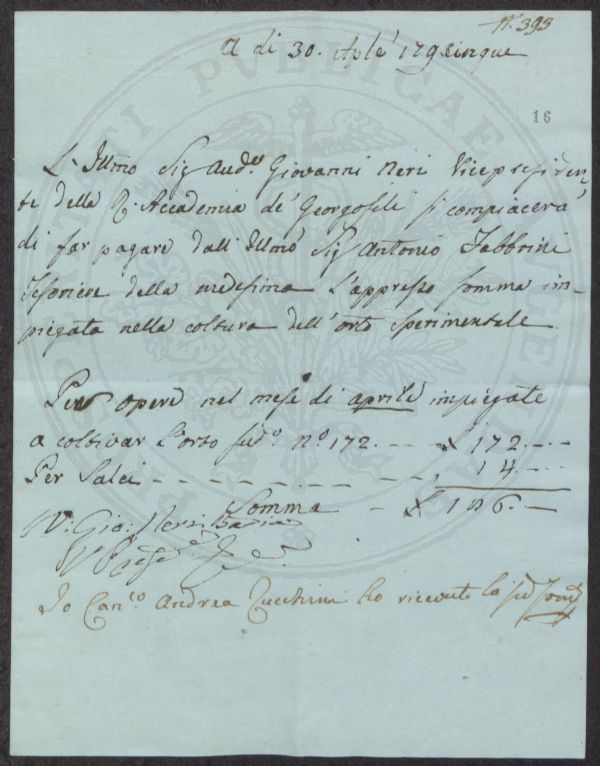 N.° 393
A di 30. Aple' 179cinque
16
L' Illmo Sig Aud.re Giovanni Neri Vicepresiden-
te della R. Accademia de' Georgofili si compiacerà
di far pagare dall' Illmo Sig Antonio Fabbrini
Tesoriere della medesima l'appresso somma im-
piegata nella coltura dell' orto sperimentale
Per opere nel mese di aprile impiegate
a coltivar l'orto sud.o n.o 172. --- £ 172. --
Per Salci ------------- 14. --
Somma - £ 186. --
V.° Gio: Neri Badia
V. Pres.e
Io Can.co Andrea Zucchini ho ricevuto la sud.
PROSPERITATI PVBLICAE AVGENDAE